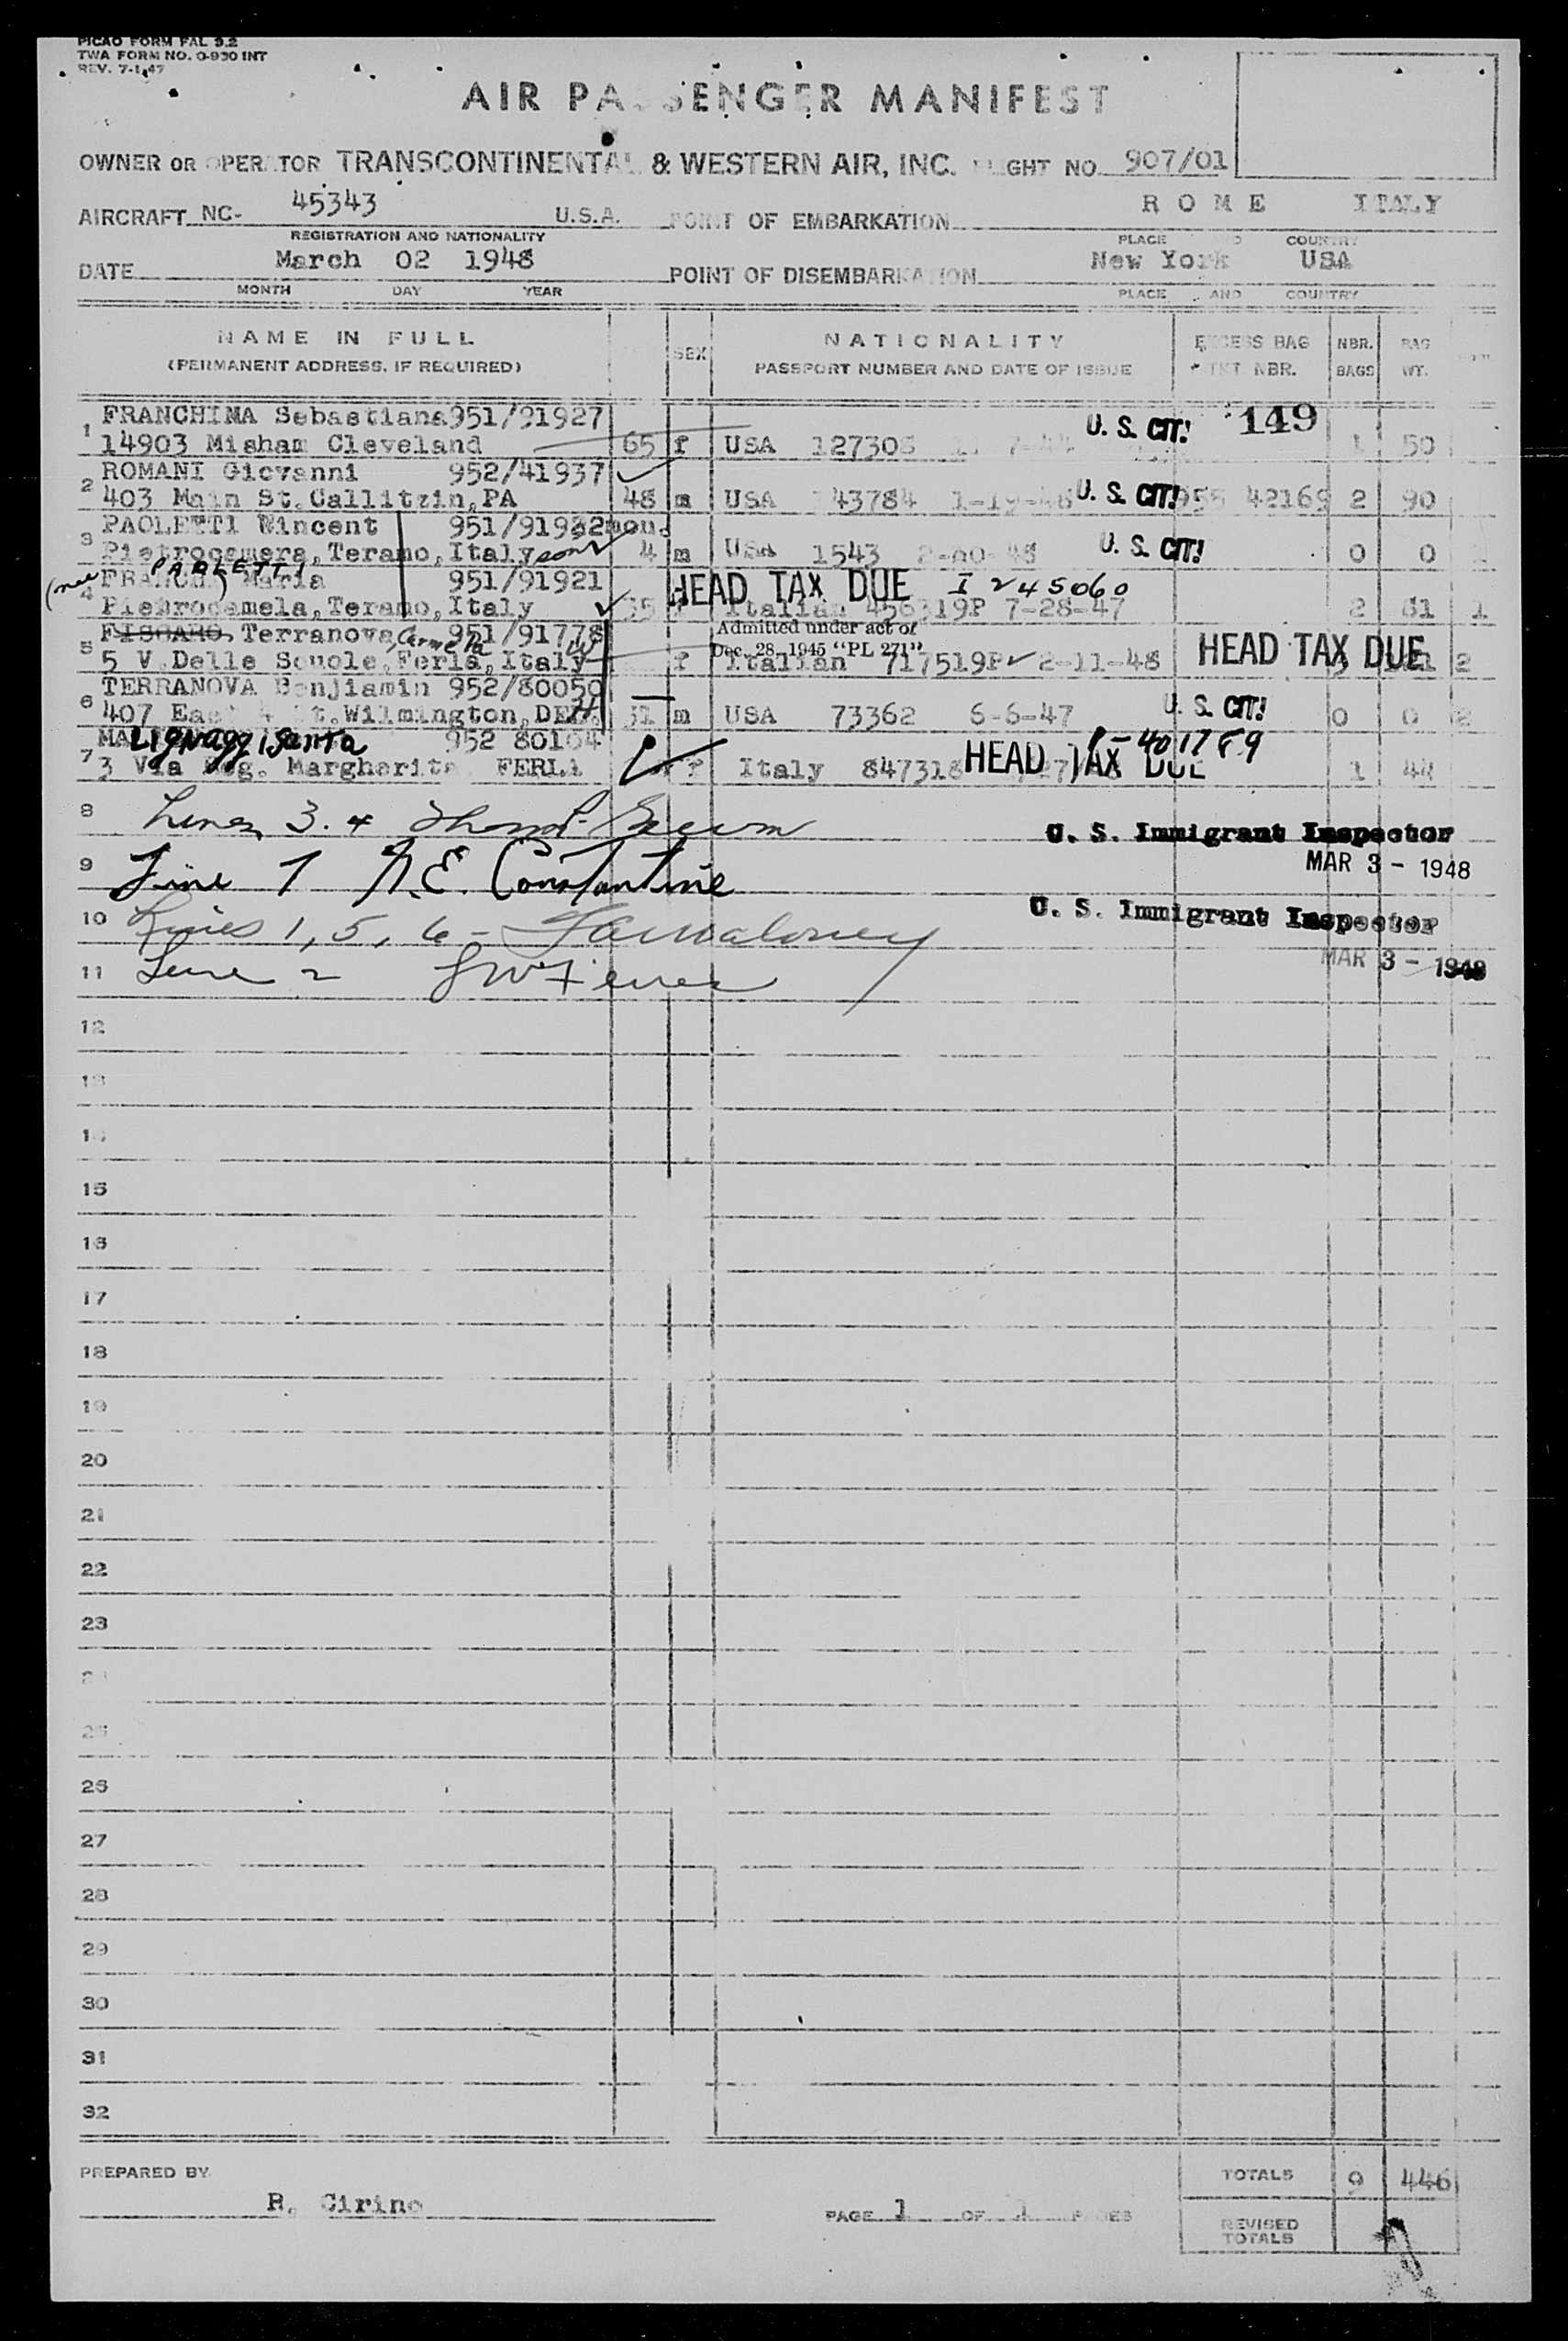 PICAO FORM FAL 3.2
TWA FORM NO. O-930 INT
REV. 7-1-47
AIR PASSENGER MANIFEST
OWNER OR OPERATOR TRANSCONTINENTAL & WESTERN AIR, INC. FLIGHT NO. 907/01
AIRCRAFT NC- 45343 U.S.A. POINT OF EMBARKATION ROME ITALY
REGISTRATION AND NATIONALITY PLACE AND COUNTRY
DATE March 02 1948 POINT OF DISEMBARKATION New York USA
MONTH DAY YEAR PLACE AND COUNTRY
NAME IN FULL SEX NATIONALITY EXCESS BAG NBR. BAG
(PERMANENT ADDRESS, IF REQUIRED) PASSPORT NUMBER AND DATE OF ISSUE TKT NBR. BAGS WT.
FRANCHINA Sebastiana 951/91927 U. S. CIT! 149
1 14903 Misham Cleveland 65 f USA 1 50
ROMANI Giovanni 952/41937
2 403 Main St. Gallitzin, PA 48 m USA 43784 U. S. CIT! 42169 2 90
PAOLETTI Wincent
3 Teramo, Italy 4 m USA 1543 U. S. CIT! 0 0
PAOLETTI
(nee FRANCHI) Maria 951/91921 HEAD TAX DUE I 245060
4 Pietrocamela, Teramo, Italy 35 Italian 456319P 7-28-47 2 61 1
Terranova Carmela 951/91778 W Admitted under act of
Dec. 28, 1945 "PL 271"
5 5 V. Delle Scuole, Ferla, Italy f Italian 717519P 2-11-48 HEAD TAX DUE 2
TERRANOVA Benjiamin 952/80050
6 407 East 4 St. Wilmington, DEL. H 31 m USA 73362 6-6-47 U. S. CIT! 0 0 2
MALignaggi Santa 952 80104
7 3 Via Reg. Margherita FERLA f Italy 847318 HEAD TAX DUE 1 44
8 Lines 3. 4
U. S. Immigrant Inspector
9 Line 7 N.E. Constantine MAR 3 - 1948
10 Lines 1, 5, 6 - U. S. Immigrant Inspector
11 Line 2 MAR 3 - 1948
12
13
14
15
16
17
18
19
20
21
22
23
24
25
26
27
28
29
30
31
32
PREPARED BY R. Cirino TOTALS 9 446
PAGE 1 OF 1 PAGES
REVISED
TOTALS